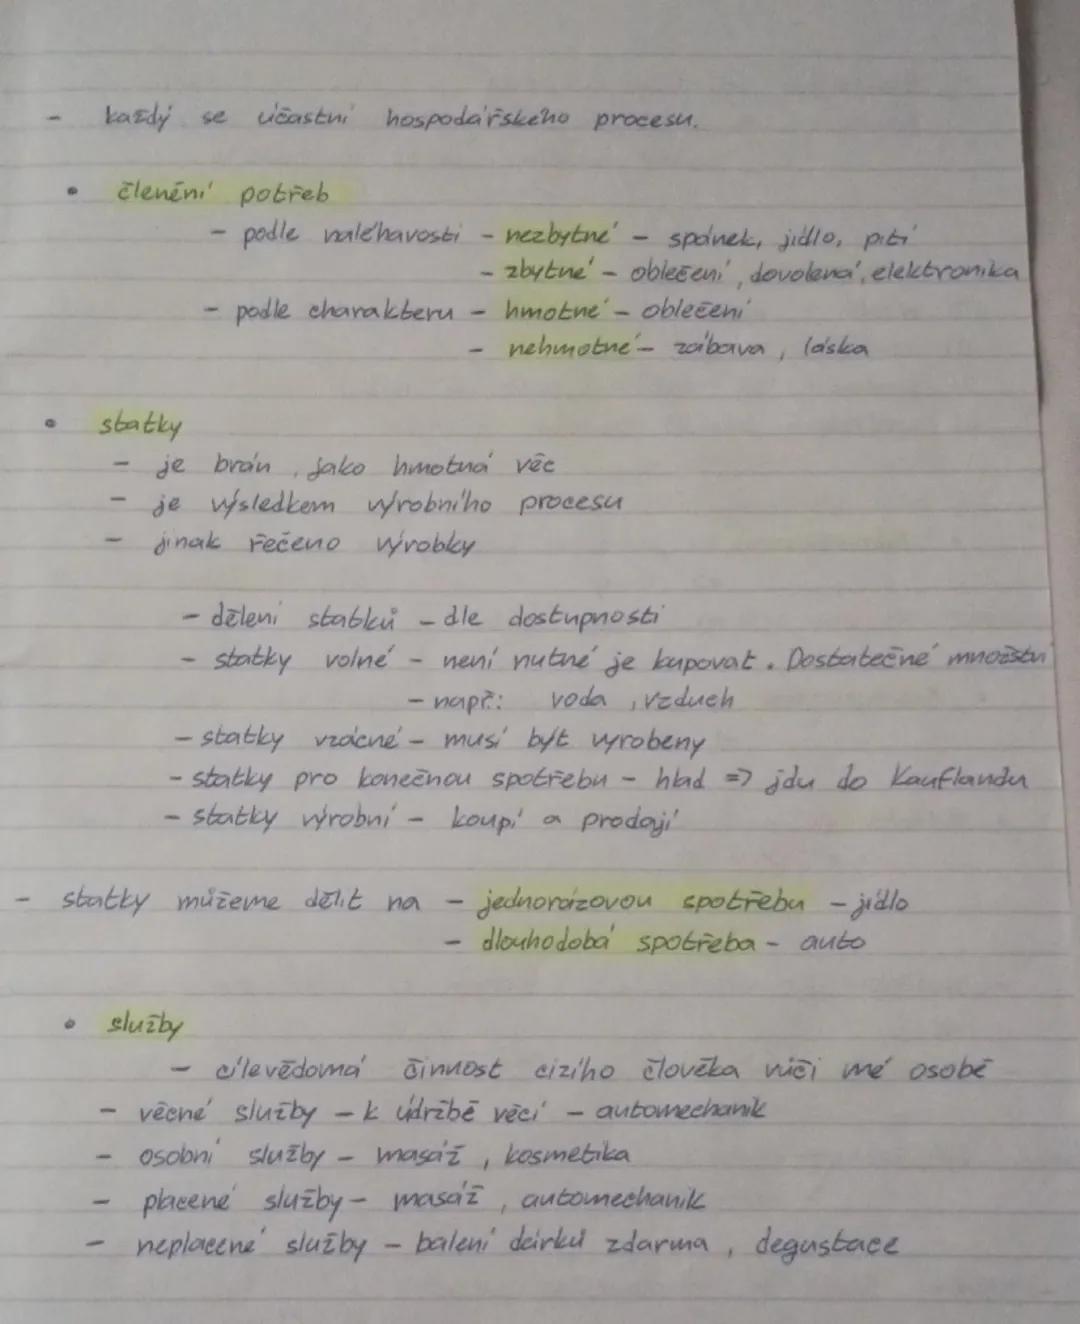 - každý se účastní hospodářského procesu.
• členění potřeb
- podle naléhavosti - nezbytné - spánek, jídlo, pití
- zbytné - oblečení, dovolená, elektronika
- podle charakteru - hmotné - oblečení
- nehmotné - zábava, láska
• statky
- je brán jako hmotná věc
- je výsledkem výrobního procesu
- jinak řečeno výrobky
- dělení statků - dle dostupnosti
- statky volné - není nutné je kupovat. Dostatečné množství
- např: voda, vzduch
- statky vzácné - musí být vyrobeny
- statky pro konečnou spotřebu - hlad => jdu do Kauflandu
- statky výrobní - koupí a prodají
- statky můžeme dělit na - jednorázovou spotřebu - jídlo
- dlouhodobá spotřeba - auto
• služby
- cílevědomá činnost cizího člověka vůči mé osobě
- věcné služby - k údržbě věcí - automechanik
- osobní služby - masáž, kosmetika
- placené služby - masáž, automechanik
- neplacené služby - balení dárků zdarma, degustace